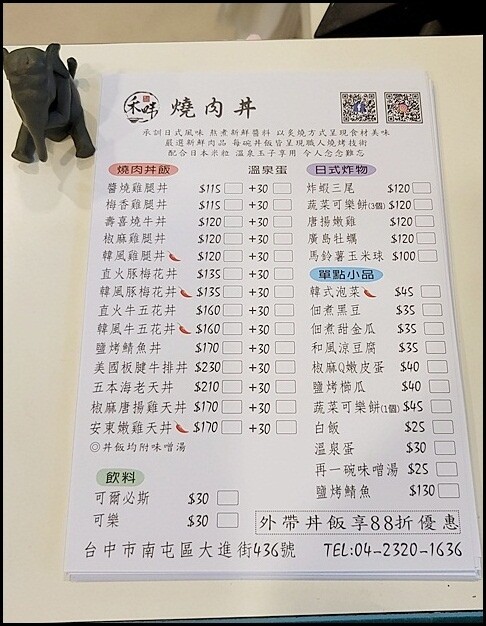 禾味 燒肉丼
承訓日式風味 熬煮新鮮醬料 以炙燒方式呈現食材美味
嚴選新鮮肉品 每碗丼飯皆呈現職人燒烤技術
配合日本米粒 溫泉玉子享用 令人念念難忘
燒肉丼飯 溫泉蛋
醬燒雞腿丼 $115 +30
梅香雞腿丼 $115 +30
壽喜燒牛丼 $120 +30
椒麻雞腿丼 $120 +30
韓風雞腿丼 $120 +30
直火豚梅花丼 $135 +30
韓風豚梅花丼 $135 +30
直火牛五花丼 $160 +30
韓風牛五花丼 $160 +30
鹽烤鯖魚丼 $170 +30
美國板腱牛排丼 $230 +30
五本海老天丼 $210 +30
椒麻唐揚雞天丼 $170 +30
安東嫩雞天丼 $170 +30
◎丼飯均附味噌湯
飲料
可爾必斯 $30
可樂 $30
日式炸物
炸蝦三尾 $120
蔬菜可樂餅(3個) $120
唐揚嫩雞 $120
廣島牡蠣 $120
馬鈴薯玉米球 $100
單點小品
韓式泡菜 $45
佃煮黑豆 $35
佃煮甜金瓜 $35
和風涼豆腐 $35
椒麻Q嫩皮蛋 $40
鹽烤櫛瓜 $40
蔬菜可樂餅(1個) $45
白飯 $25
溫泉蛋 $30
再一碗味噌湯 $25
鹽烤鯖魚 $130
外帶丼飯享88折優惠
台中市南屯區大進街436號 TEL:04-2320-1636